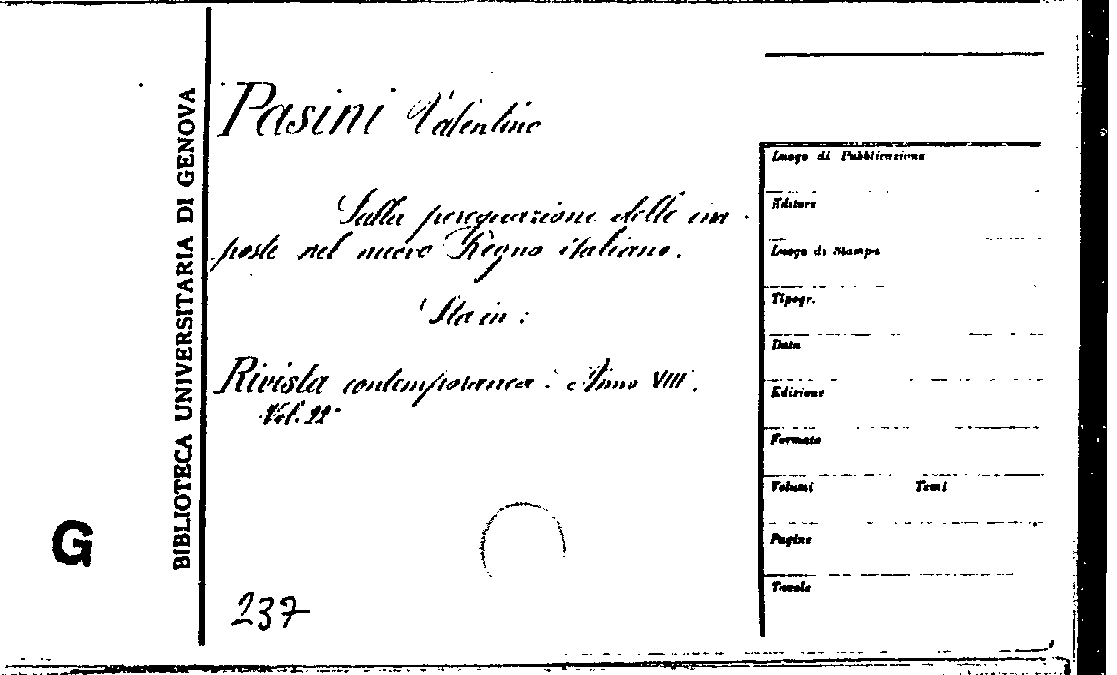 BIBLIOTECA UNIVERSITARIA DI GENOVA
G
Pasini Valentino
Sulla perequazione delle im-
poste nel nuovo Regno italiano.
Sta in:
Rivista contemporanea: Anno VIII.
Vol. 22
237
Luogo di Pubblicazione
Editore
Luogo di Stampa
Tipogr.
Data
Edizione
Formato
Volumi Tomi
Pagine
Tavole